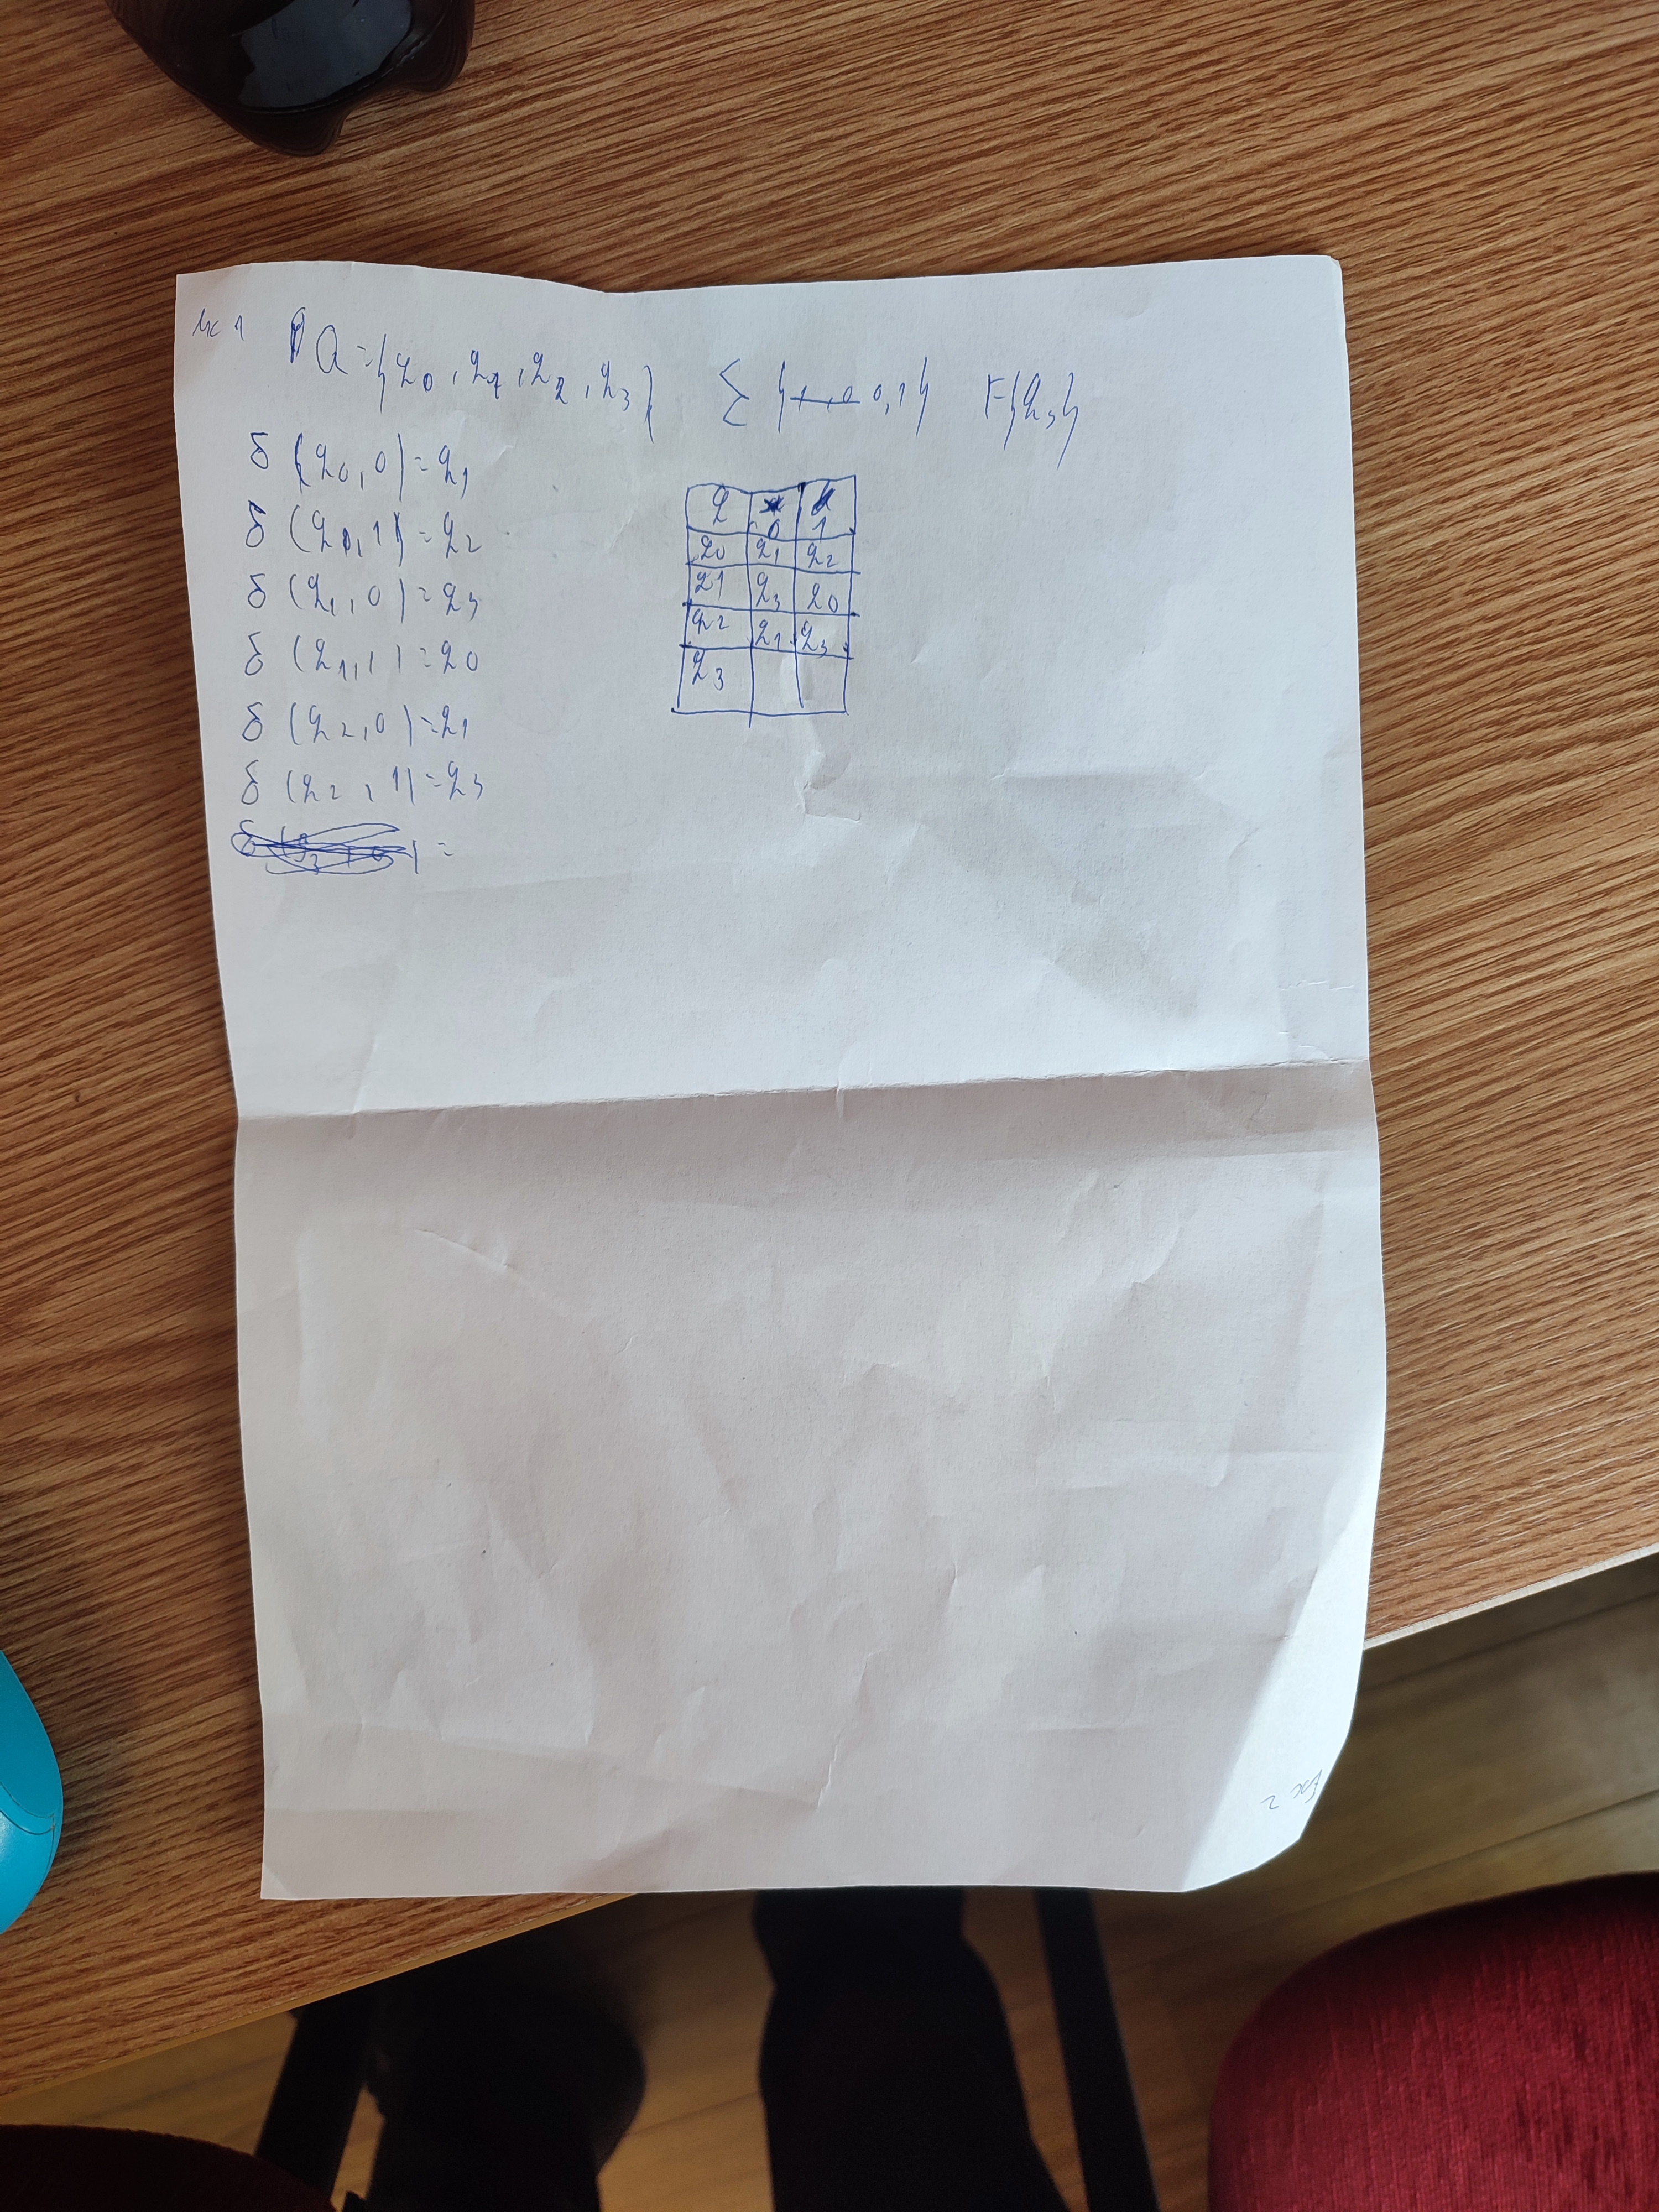 Ex 1 Q = {q0, q1, q2, q3} Σ {0,1} F{q3}
δ (q0, 0) = q1
δ (q0, 1) = q2
δ (q1, 0) = q3
δ (q1, 1) = q0
δ (q2, 0) = q1
δ (q2, 1) = q3
=
q 0 1
q0 q1 q2
q1 q3 q0
q2 q1 q3
q3
Ex 2